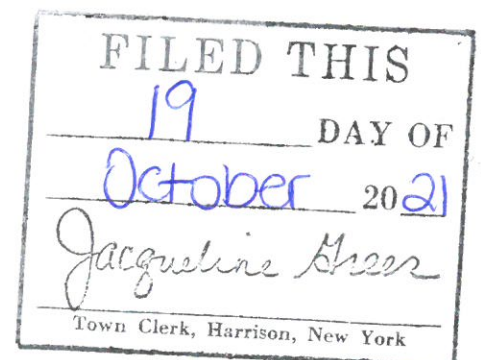 FILED THIS
19 DAY OF
October 2021
Jacqueline Greer
Town Clerk, Harrison, New York